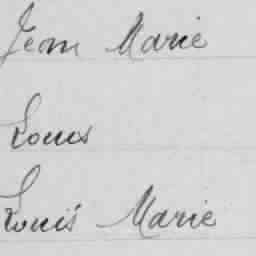 Jean Marie
Louis
Louis Marie